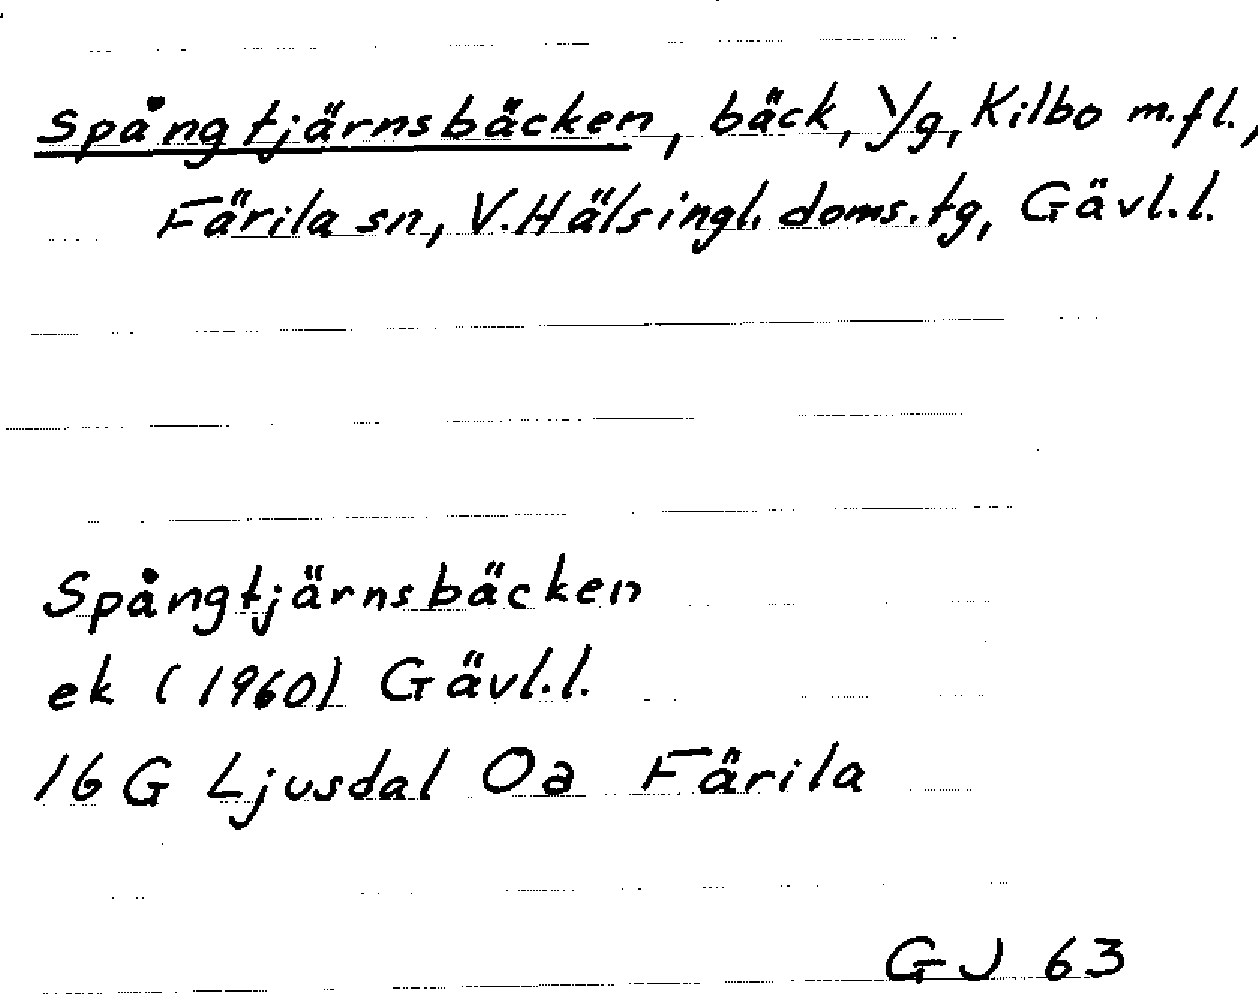 Spångtjärnsbäcken, bäck, Yg, Kilbo m.fl.,
Färila sn, V. Hälsingl. doms. tg, Gävl. l.
Spångtjärnsbäcken
ek (1960) Gävl. l.
16 G Ljusdal 0a Färila
GJ 63